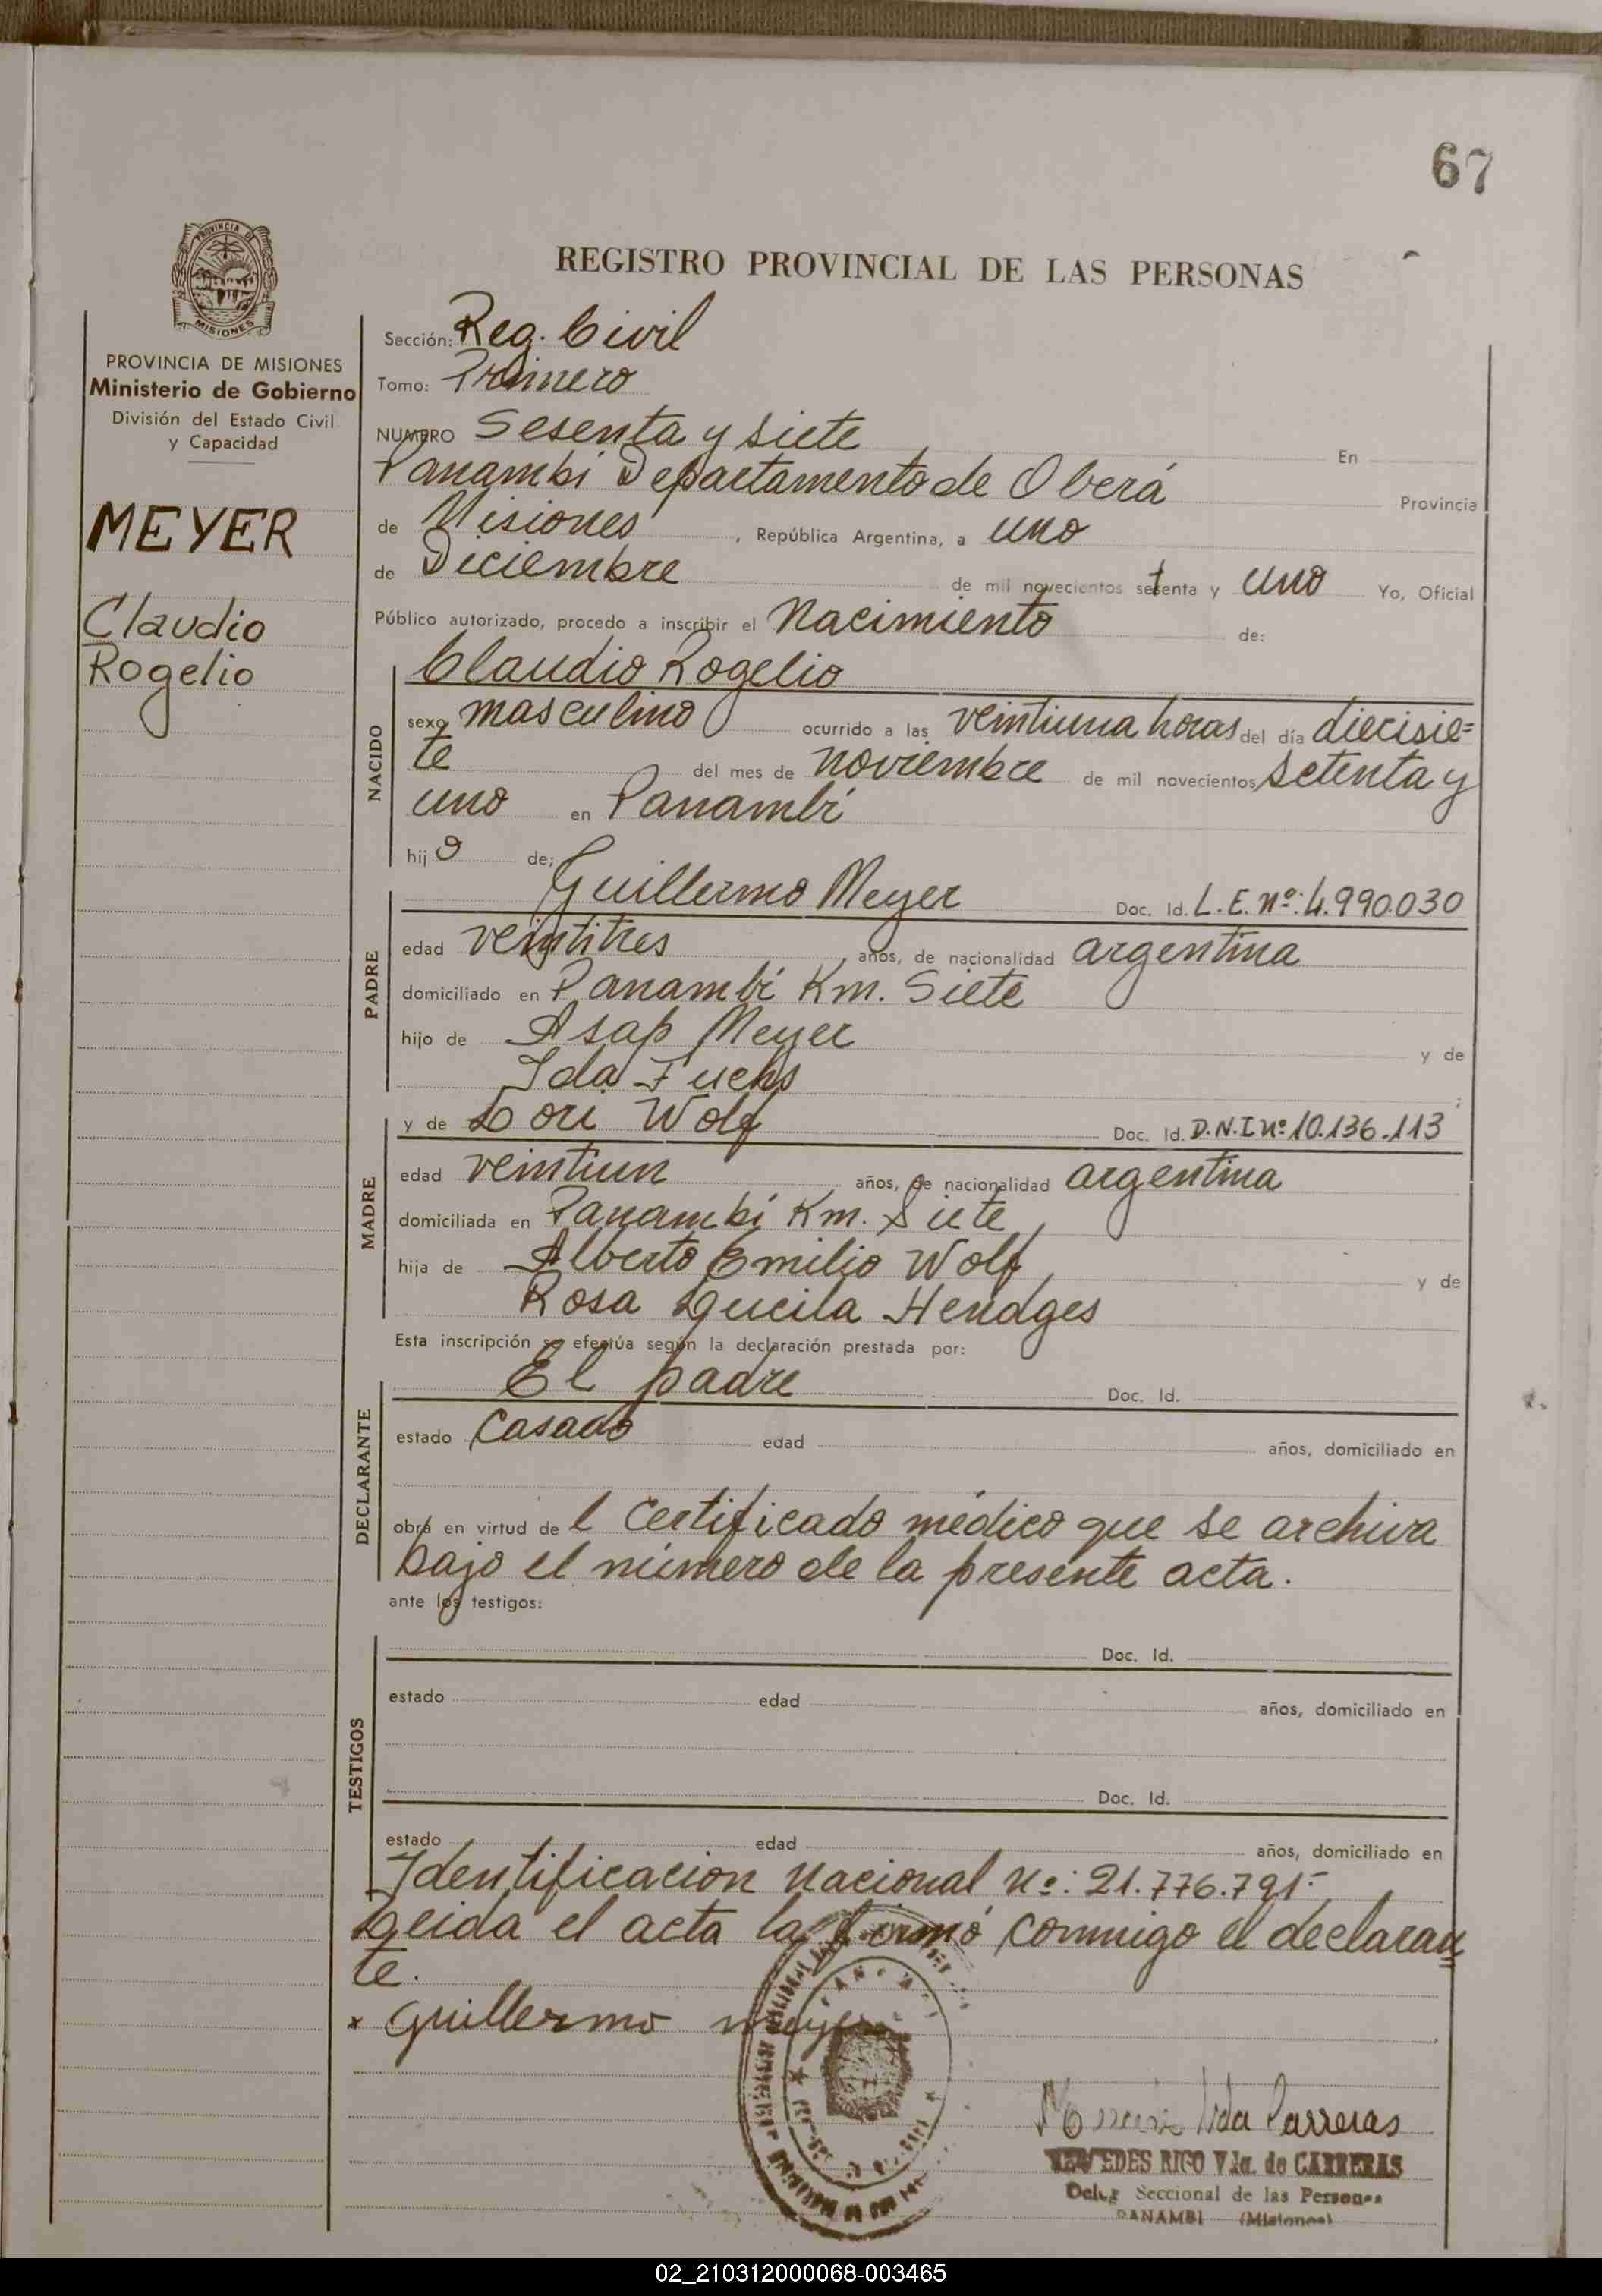 67
REGISTRO PROVINCIAL DE LAS PERSONAS
PROVINCIA DE MISIONES
Ministerio de Gobierno
División del Estado Civil
y Capacidad
MEYER
Claudio
Rogelio
Sección: Reg. Civil
Tomo: Primero
NUMERO Sesenta y siete En
Panambí Departamento de Oberá Provincia
de Misiones, República Argentina, a uno
de Diciembre de mil novecientos setenta y uno Yo, Oficial
Público autorizado, procedo a inscribir el Nacimiento de:
NACIDO
Claudio Rogelio
sexo masculino ocurrido a las veintiuna horas del día diecisie=
te del mes de noviembre de mil novecientos setenta y
uno en Panambí
hijo de;
PADRE
Guillermo Meyer Doc. Id. L.E. nº: 4.990.030
edad veintitres años, de nacionalidad argentina
domiciliado en Panambí Km. Siete
hijo de Asap Meyer y de
Ida Fuchs
MADRE
y de Lori Wolf Doc. Id. D.N.I nº 10.136.113
edad veintiun años, de nacionalidad argentina
domiciliada en Panambí Km. Siete
hija de Alberto Emilio Wolf y de
Rosa Lucila Hendges
Esta inscripción se efectúa según la declaración prestada por:
DECLARANTE
El padre Doc. Id.
estado Casado edad años, domiciliado en
obra en virtud de l Certificado médico que se archiva
bajo el número de la presente acta.
ante los testigos:
TESTIGOS
Doc. Id.
estado edad años, domiciliado en
Doc. Id.
estado edad años, domiciliado en
Identificacion Nacional Nº: 21.776.791-
Leida el acta la firmó conmigo el declaran
te.
x Guillermo meyer
Vda Carreras
MERCEDES RICO Vda. de CARRERAS
Deleg Seccional de las Personas
PANAMBI (Misiones)
02_210312000068-003465